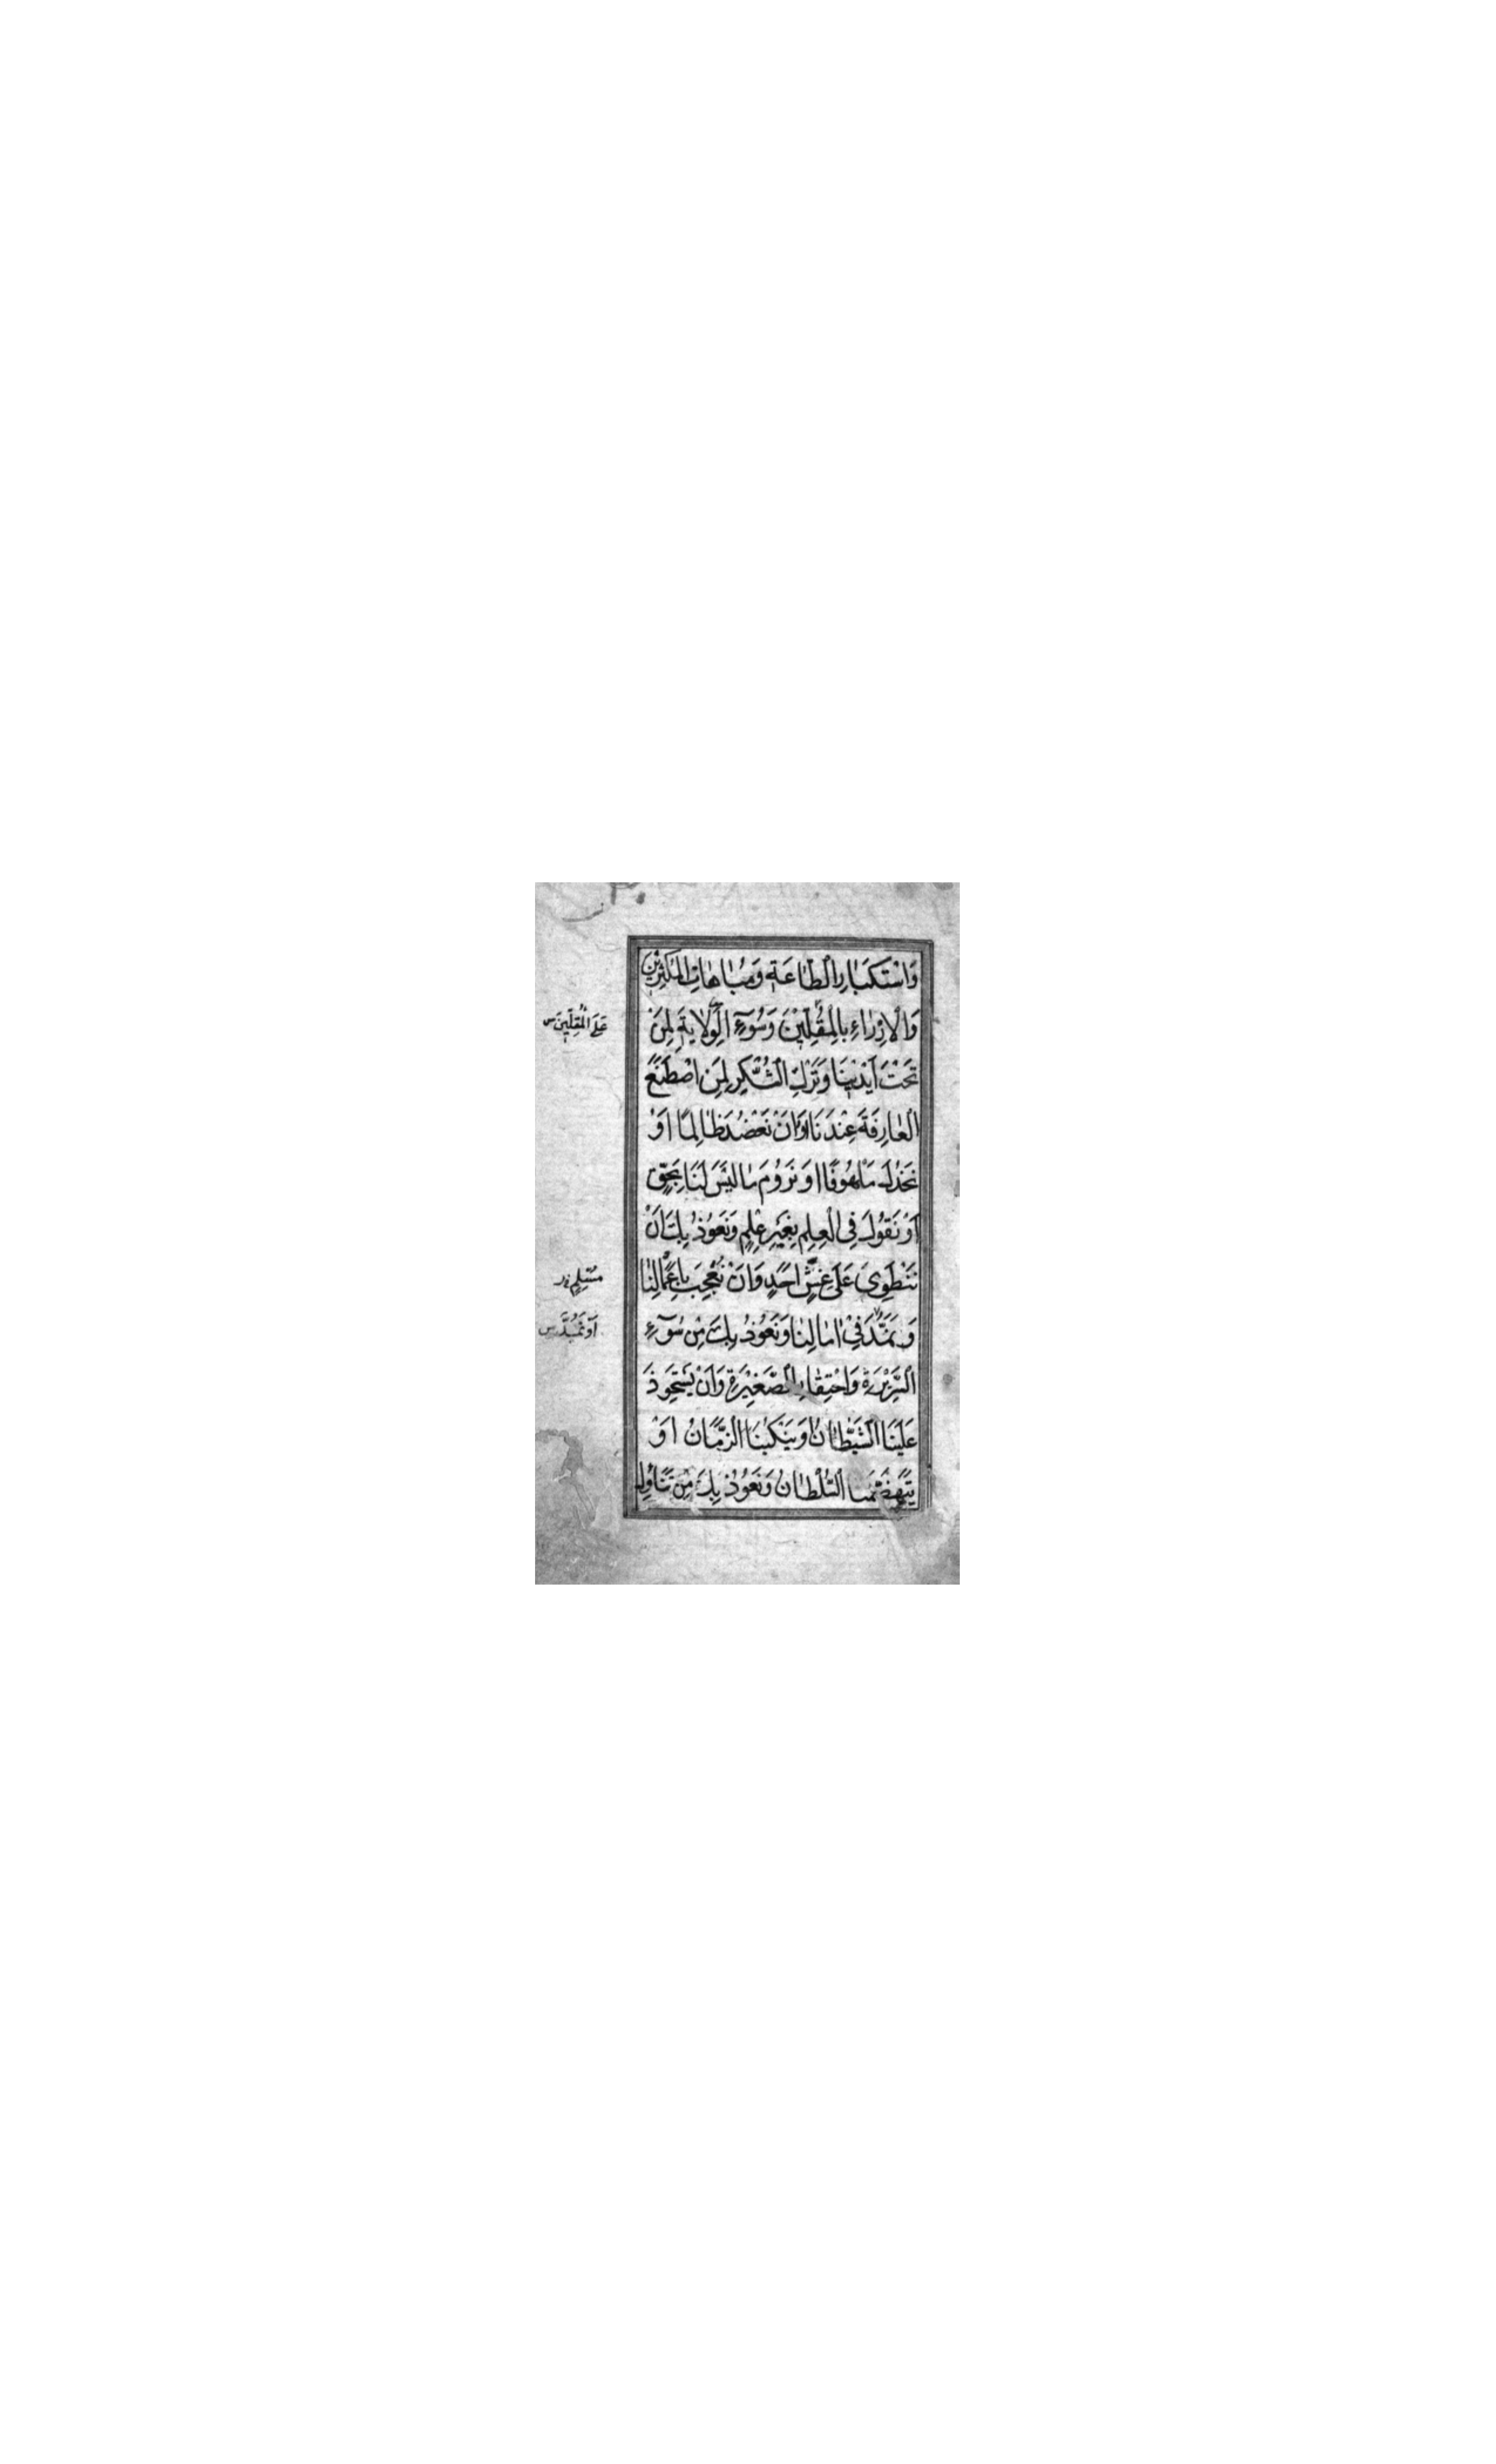 وَاسْتَكْبَارِ الطَّاعَةِ وَمُبَاهَاتِ الْمُكْثِرِينَ
وَالْاِزْرَاءِ بِالْمُقِلِّيْنَ وَسُوۤءِ الْوِلَايَةِ لِمَنْ
عَلَى الْمُقِلِّينَ س
تَحْتَ اَيْدِيْنَا وَتَرْكِ الشُّكْرِ لِمَنِ اصْطَنَعَ
الْعَارِفَةَ عِنْدَنَا اَوْ اَنْ نَعْضُدَ ظَالِمًا اَوْ
نَخْذُلَ مَلْهُوفًا اَوْ نَرُومَ مَا لَيْسَ لَنَا بِحَقٍّ
اَوْ نَقُولَ فِي الْعِلْمِ بِغَيْرِ عِلْمٍ وَنَعُوذُ بِكَ اَنْ
نَنْطَوِيَ عَلَى غِشِّ اَحَدٍ وَاَنْ نُعْجِبَ بِاَعْمَالِنَا
مُسْلِمٍ
وَنَمُدَّ فِيْ اٰمَالِنَا وَنَعُوْذُ بِكَ مِنْ سُوۤءِ
اَوْ نَمُدَّ س
السَّرِيْرَةِ وَاحْتِقَارِ الصَّغِيْرَةِ وَاَنْ يَسْتَحْوِذَ
عَلَيْنَا الشَّيْطَانُ اَوْ يَنْكُبَنَا الزَّمَانُ اَوْ
يَتَهَضَّمَنَا السُّلْطَانُ وَنَعُوْذُ بِكَ مِنْ تَنَاوُلِ